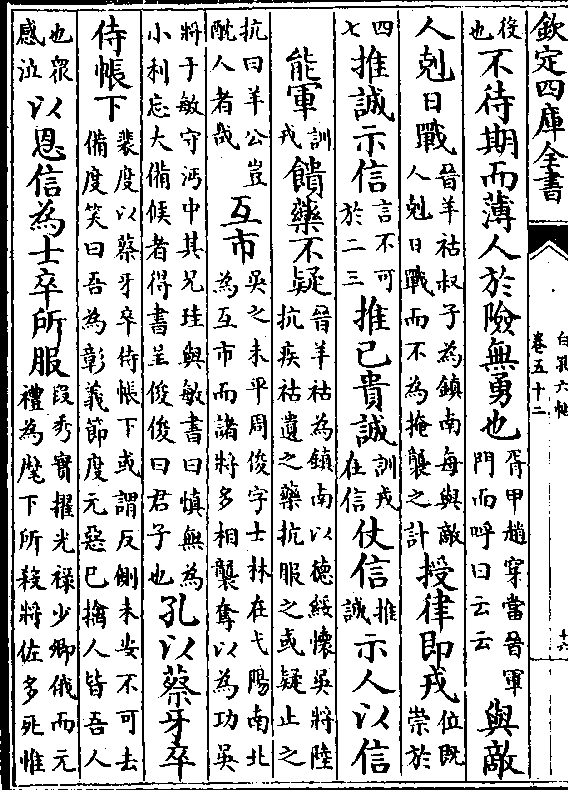 欽定四庫全書
白孔六帖
卷五十二
十六
後也不待期而薄人於險無勇也胥甲趙穿當晉軍門而呼曰云云與敵
人剋日戰晉羊祜叔子為鎮南每與敵人剋日戰而不為掩襲之計授律即戎位既崇於
四七推誠示信言不可於二三推已貴誠訓戎在信仗信推誠示人以信
能軍訓戎饋藥不疑晉羊祜為鎮南以德綏懷吳將陸抗疾祜遺之藥抗服之或疑止之
抗曰羊公豈酖人者哉互市吳之未平周俊字士林在弋陽南北為互市而諸將多相襲奪以為功吳
將于敏守沔中其兄珪與敏書曰慎無為小利忘大備候者得書呈俊俊曰君子也孔以蔡牙卒
侍帳下裴度以蔡牙卒侍帳下或謂反側未安不可去備度笑曰吾為彰義節度元惡已擒人皆吾人
也眾感泣以恩信為士卒所服段秀實擢光禄少卿俄而元禮為麾下所殺將佐多死惟